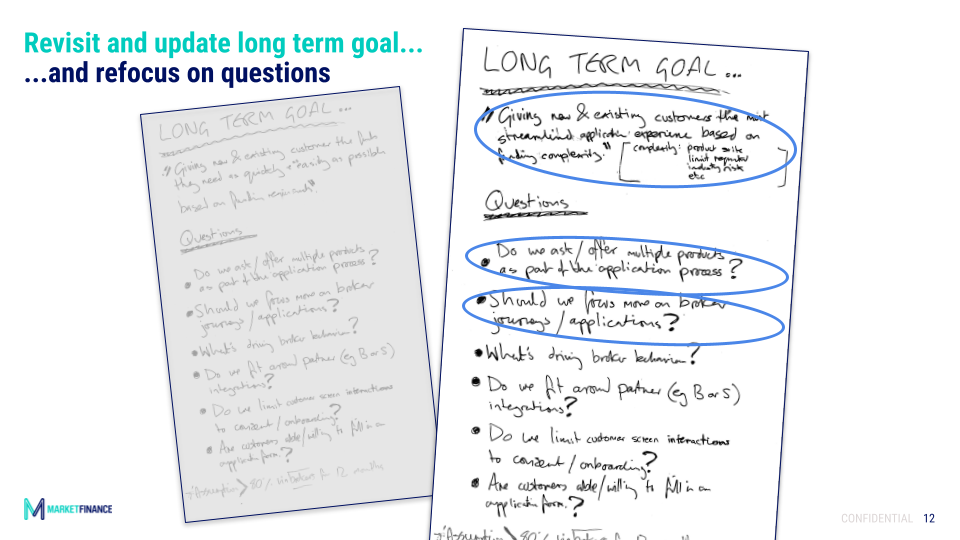 Revisit and update long term goal...
...and refocus on questions
LONG TERM GOAL...
"Giving new & existing customer the funds
they need as quickly & easily as possible
based on funding requirements"
Questions
• Do we ask/offer multiple products
as part of the application process?
• Should we focus more on broker
journeys/applications?
• What's driving broker behaviour?
• Do we fit around partner (eg B or S)
integrations?
• Do we limit customer screen interactions
to consent/onboarding?
• Are customers able/willing to fill in an
application form?
"Assumption > 80% for 12 months
LONG TERM GOAL...
"Giving new & existing customers the most
streamlined application experience based on
funding complexity."
[complexity: product suite
limit requested
industry risk
etc]
Questions
• Do we ask/offer multiple products
as part of the application process?
• Should we focus more on broker
journeys/applications?
• What's driving broker behaviour?
• Do we fit around partner (eg B or S)
integrations?
• Do we limit customer screen interactions
to consent/onboarding?
• Are customers able/willing to fill in an
application form?
MARKETFINANCE
CONFIDENTIAL 12